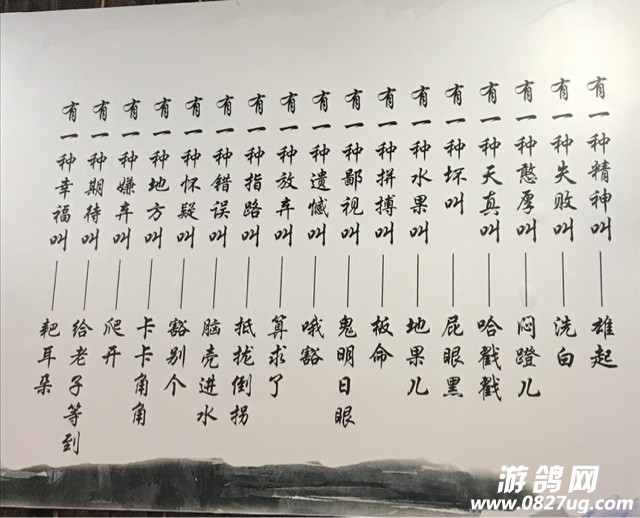 有一种精神叫——雄起
有一种失败叫——洗白
有一种憨厚叫——闷蹬儿
有一种天真叫——哈戳戳
有一种坏叫——屁眼黑
有一种水果叫——地果儿
有一种拼搏叫——板命
有一种鄙视叫——鬼明日眼
有一种遗憾叫——哦豁
有一种放弃叫——算求了
有一种指路叫——抵拢倒拐
有一种错误叫——脑壳进水
有一种怀疑叫——豁别个
有一种地方叫——卡卡角角
有一种嫌弃叫——爬开
有一种期待叫——给老子等到
有一种幸福叫——耙耳朵
游鸽网
www.0827ug.com